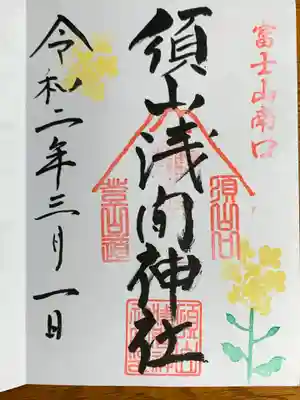 富士山南口
須山浅间神社
須山口
登山道
令和二年三月一日